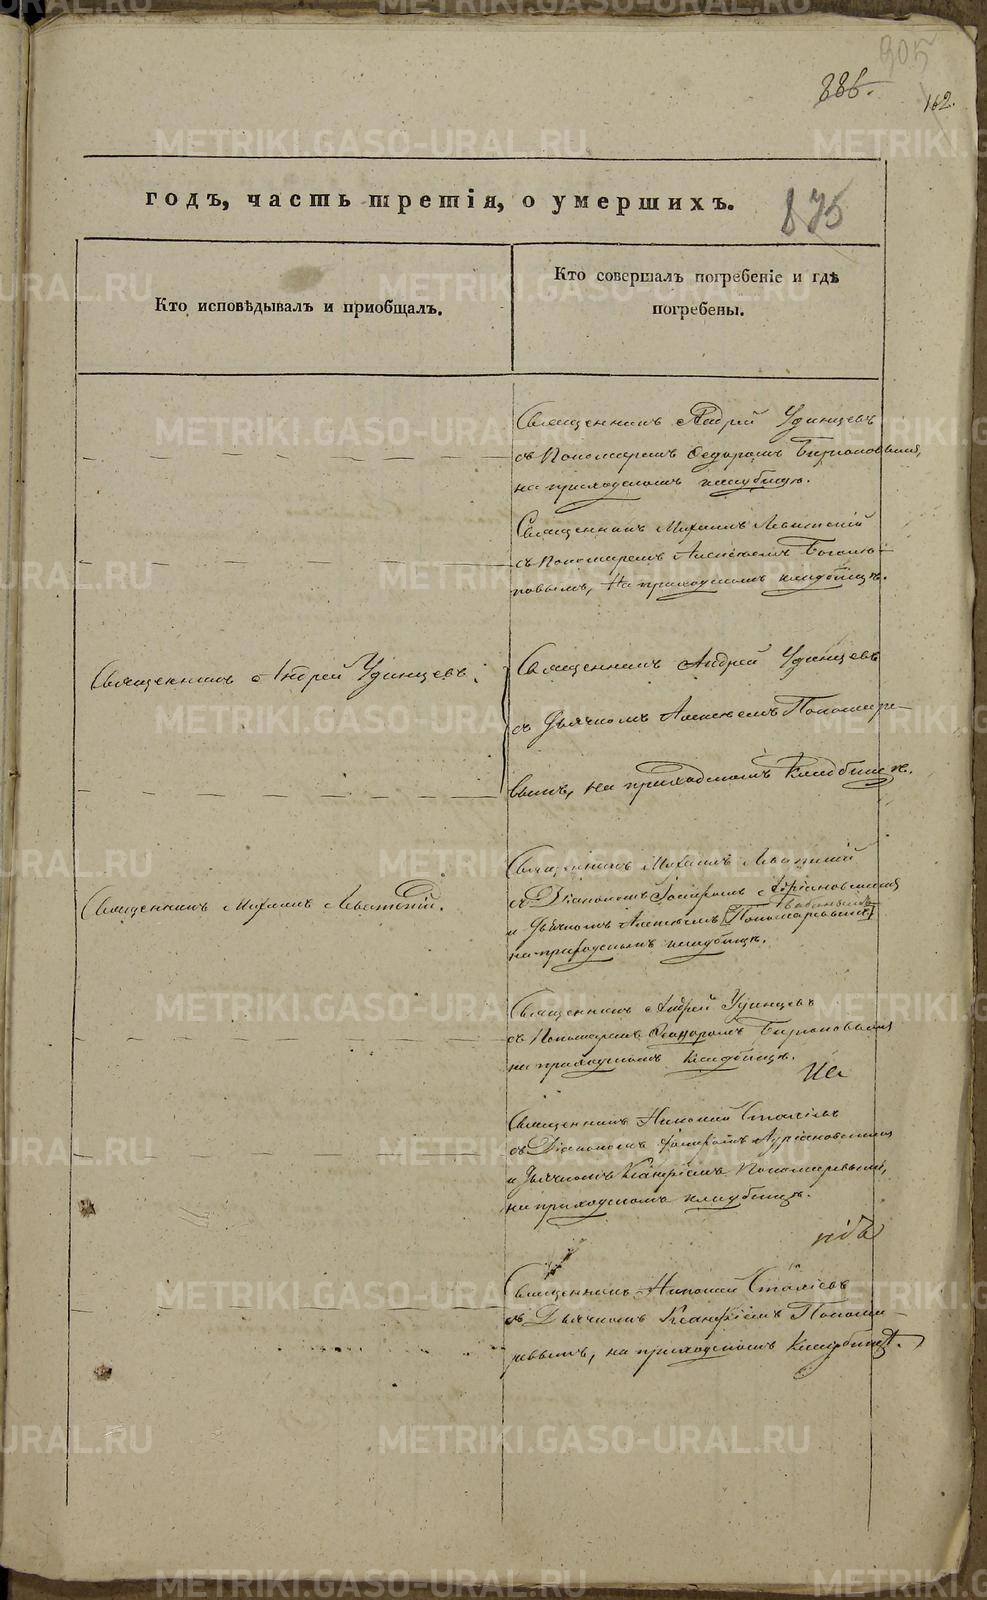 905
886.
162.
годъ, часть третія, о умершихъ.
875
Кто исповѣдывалъ и приобщалъ.
Кто совершалъ погребеніе и гдѣ
погребены.
Священникъ Андрей Удинцевъ
съ Пономаремъ Ѳедоромъ Бирюковымъ,
на приходскомъ кладбищѣ.
Священникъ Михаилъ Левитскій
съ Пономаремъ Алексѣемъ Боголю-
повымъ, На приходскомъ кладбищѣ.
Священникъ Андрей Удинцевъ.
Священникъ Андрей Удинцевъ
съ Дьячкомъ Алексѣемъ Пономаре-
вымъ, на приходскомъ Кладбищѣ.
Священникъ Михаилъ Левитскій.
Священникъ Михаилъ Левитскій
съ Діакономъ
и Дьячкомъ Алексѣемъ Пономаревымъ
на приходскомъ кладбищѣ.
Священникъ Андрей Удинцевъ
съ Пономаремъ Ѳедоромъ Бирюковымъ
на приходскомъ кладбищѣ.
Священникъ Николай
съ Діакономъ
и Дьячкомъ Пономаревымъ,
на приходскомъ кладбищѣ.
Священникъ Николай
съ Дьячкомъ Понома-
ревымъ, на приходскомъ Кладбищѣ.
METRIKI.GASO-URAL.RU